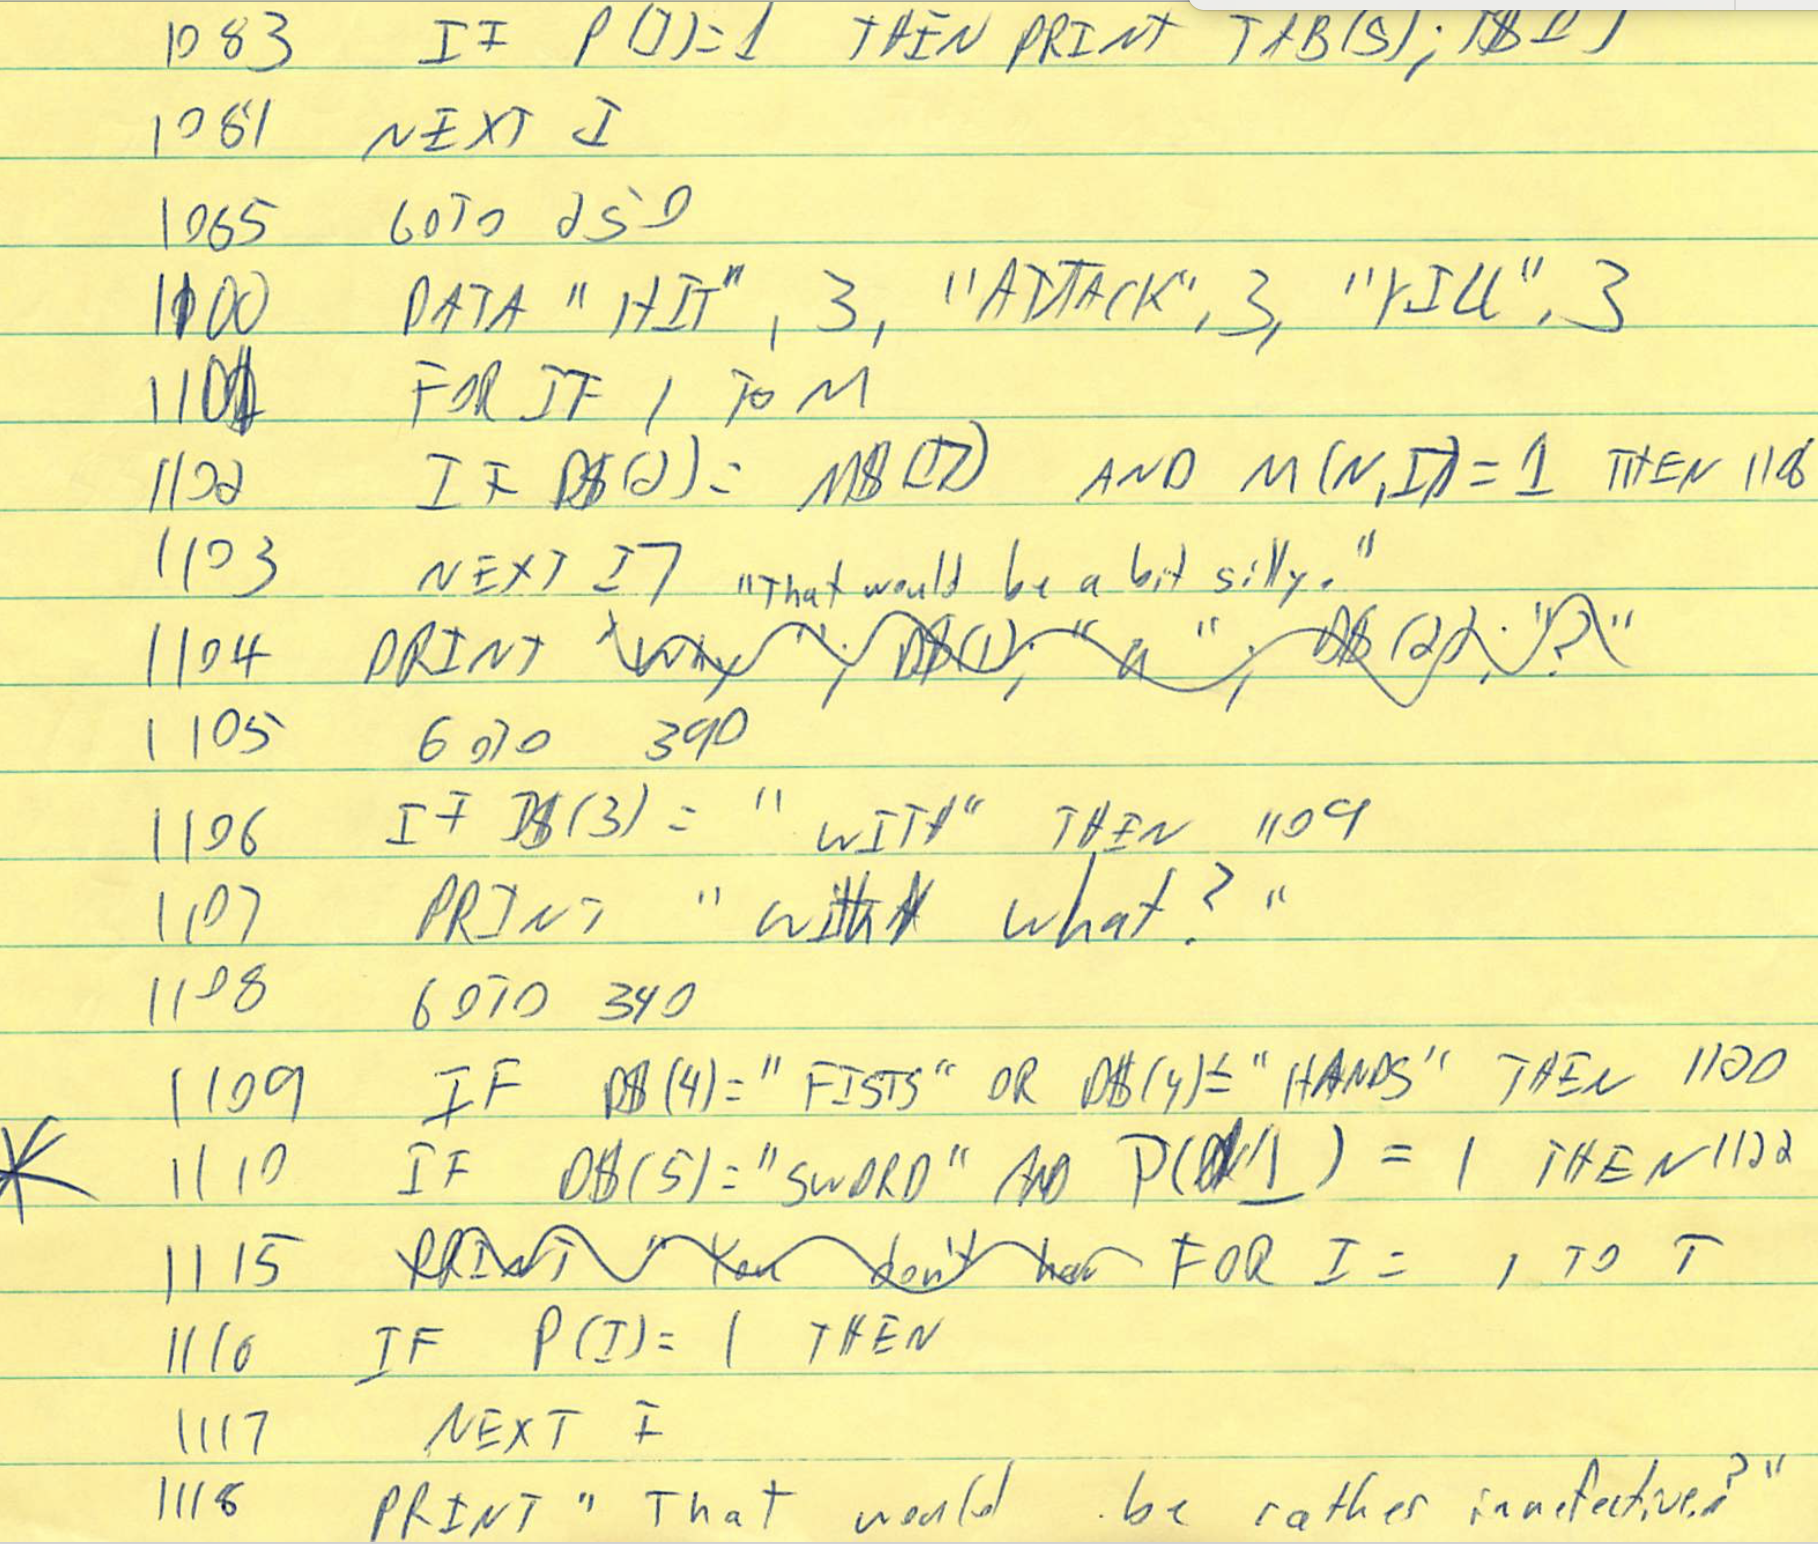 1083 IF P(I)=1 THEN PRINT TAB(5);
1081 NEXT I
1065 GOTO 250
1100 DATA "HIT", 3, "ATTACK", 3, "KILL", 3
1101 FOR I7 1 TO M
1102 IF D$(2)= M$(I7) AND M(N,I7)=1 THEN
1103 NEXT I7 "That would be a bit silly."
1104 PRINT "Why "; D$(1); " a "; D$(2); "?"
1105 GOTO 390
1106 IF D$(3)= "WITH" THEN 1109
1107 PRINT "with what?"
1108 GOTO 340
1109 IF D$(4)="FISTS" OR D$(4)= "HANDS" THEN 1120
1110 IF D$(5)="SWORD" AND P(1) = 1 THEN 1122
1115 PRINT "You don't hav FOR I = 1 TO T
1116 IF P(I)= 1 THEN
1117 NEXT I
1118 PRINT "That would be rather innefective."